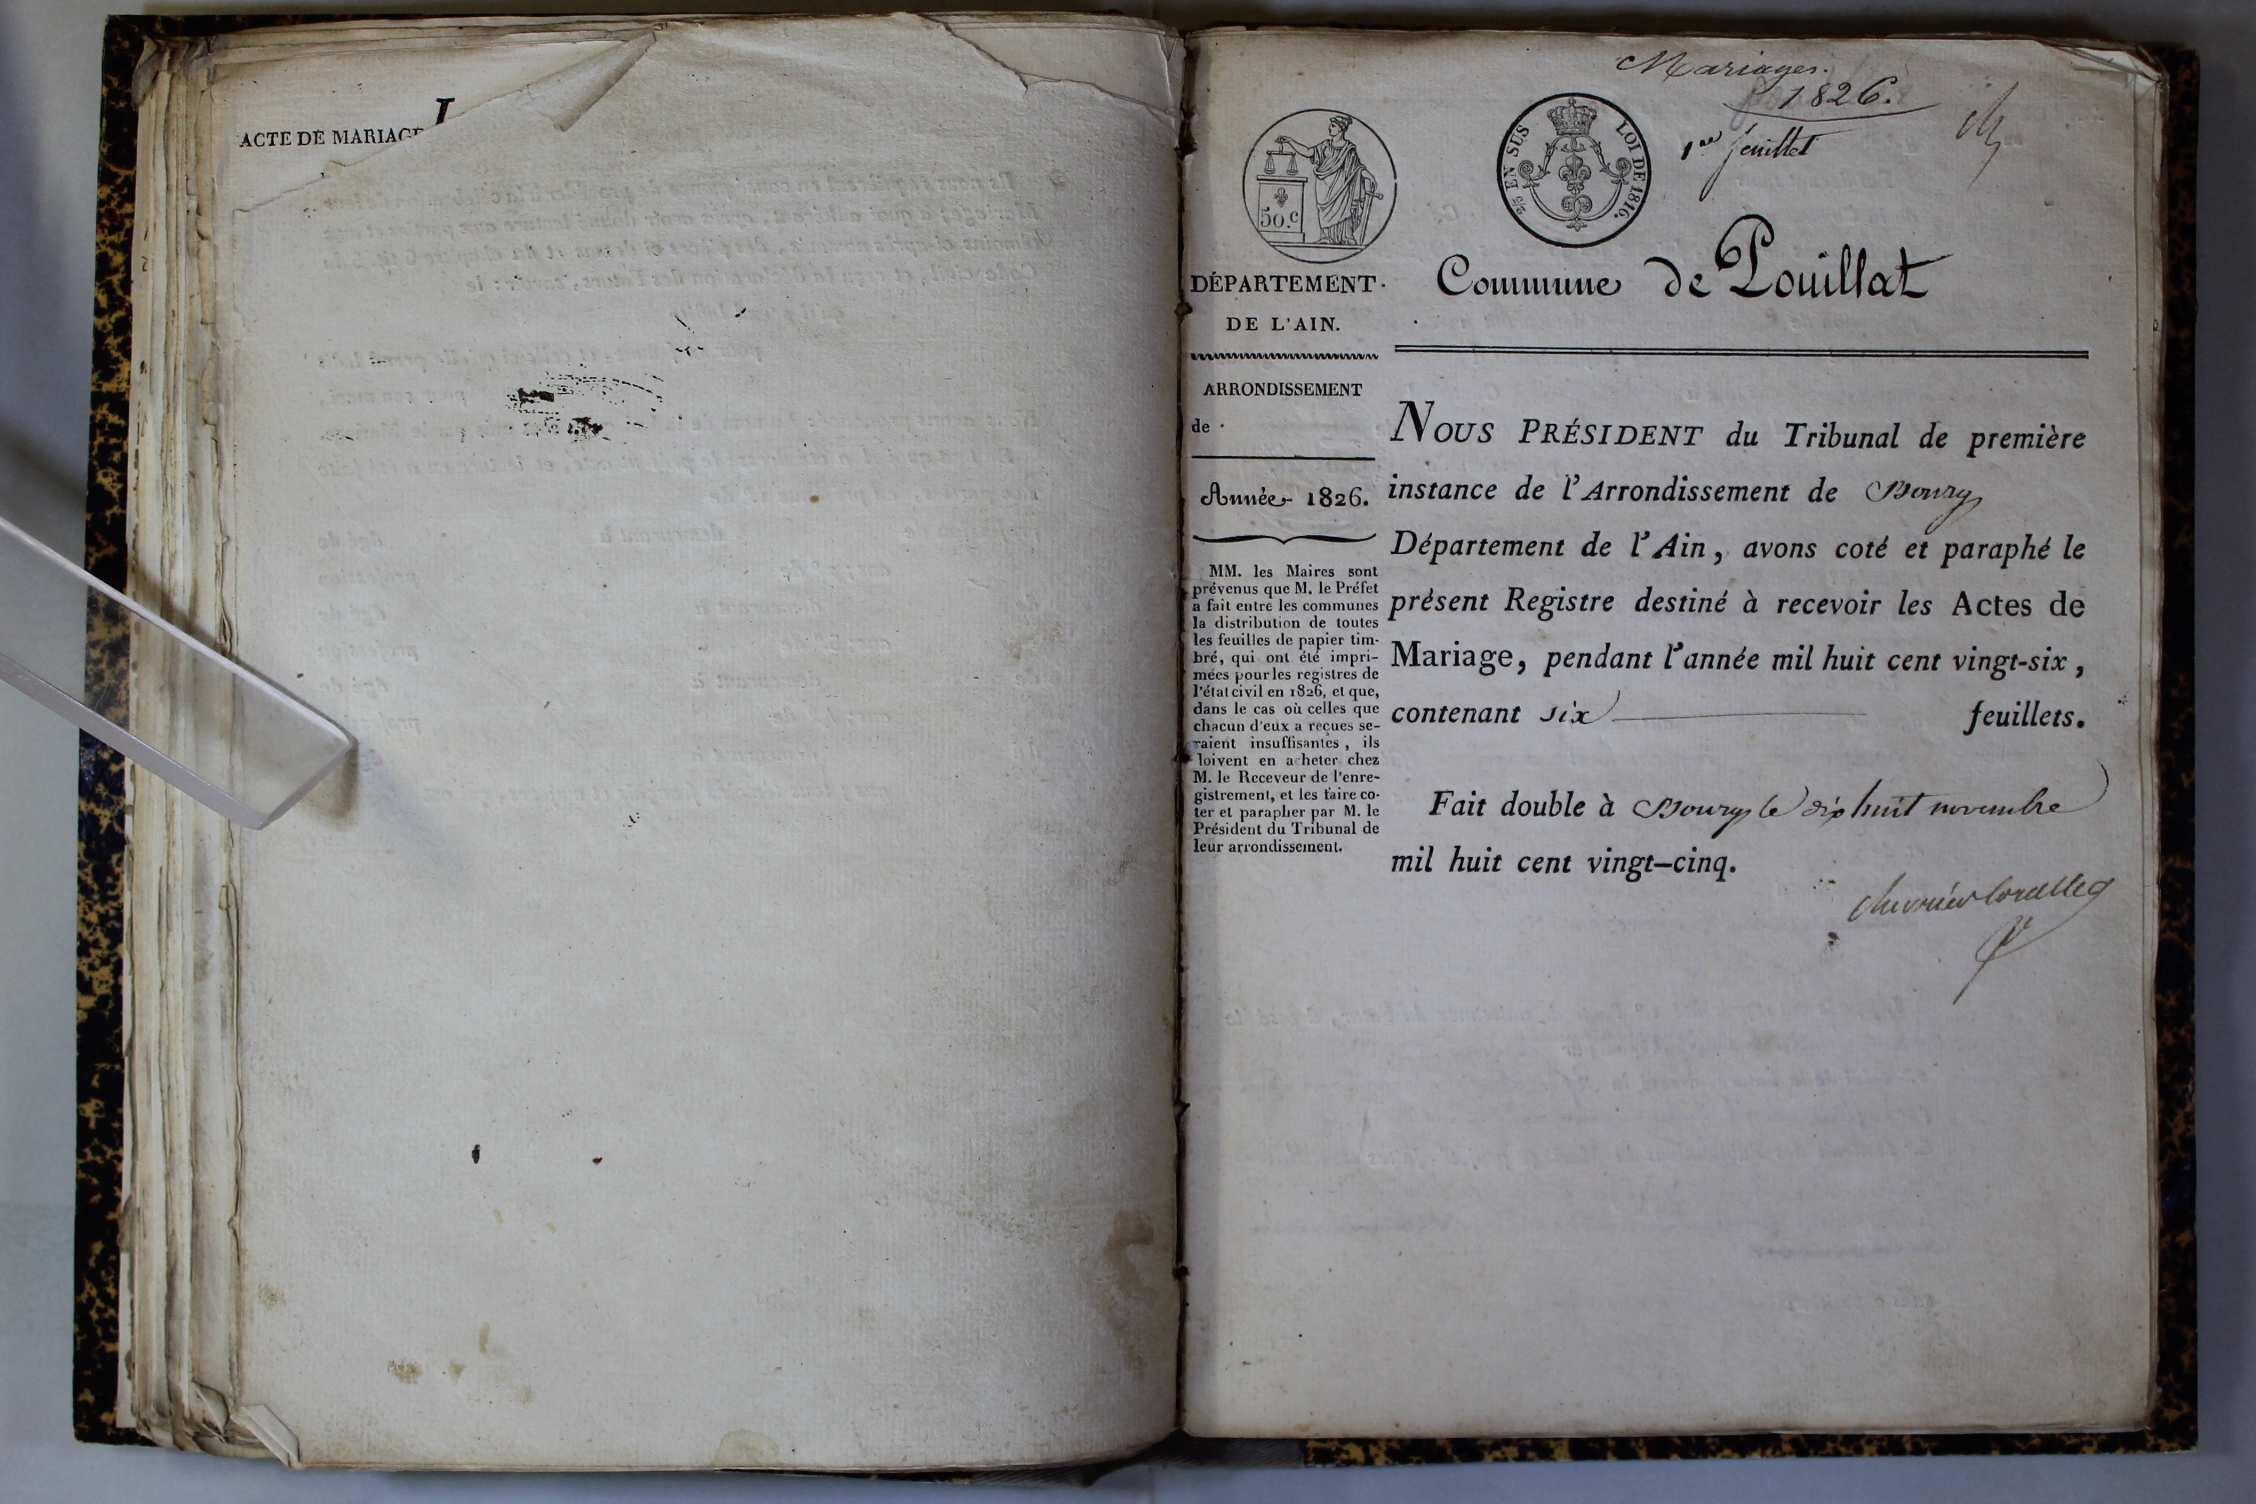 ACTE DE MARIAGE
Mariages.
1826.
1er feuillet
50.c
2/5 EN SUS LOI DE 1816.
DÉPARTEMENT
DE L'AIN.
ARRONDISSEMENT
de
Année 1826.
MM. les Maires sont
prévenus que M. le Préfet
a fait entre les communes
la distribution de toutes
les feuilles de papier tim-
bré, qui ont été impri-
mées pour les registres de
l'état civil en 1826, et que,
dans le cas où celles que
chacun d'eux a reçues se-
raient insuffisantes, ils
doivent en acheter chez
M. le Receveur de l'enre-
gistrement, et les faire co-
ter et parapher par M. le
Président du Tribunal de
leur arrondissement.
Commune de Pouillat
NOUS PRÉSIDENT du Tribunal de première
instance de l'Arrondissement de Bourg
Département de l'Ain, avons coté et paraphé le
présent Registre destiné à recevoir les Actes de
Mariage, pendant l'année mil huit cent vingt-six,
contenant six feuillets.
Fait double à Bourg le dix huit novembre
mil huit cent vingt-cinq.